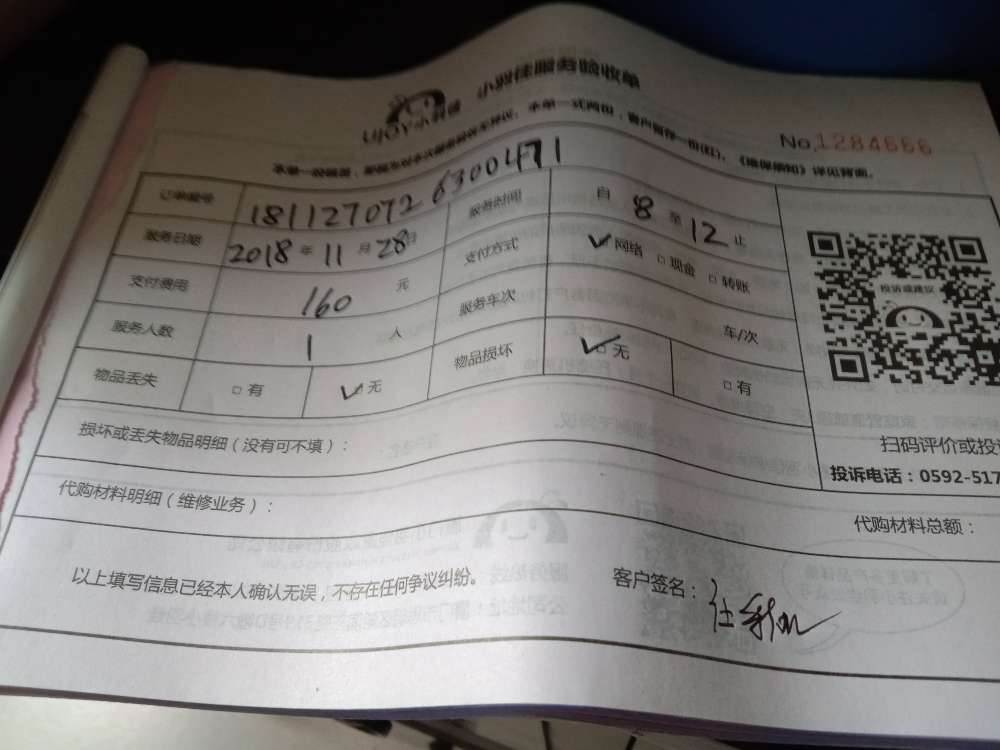 小羽佳 小羽佳服务验收单
No.1284666
订单编号 181127072 6300471
服务日期 2018年11月28日 服务时间 自8至12止
支付费用 160元 支付方式 ✓网络 □现金 □转账
服务人数 1人 服务车次 车/次
物品丢失 □有 ✓无 物品损坏 ✓□无 □有
投诉或建议
损坏或丢失物品明细(没有可不填):
扫码评价或投
投诉电话:0592-517
代购材料明细(维修业务):
代购材料总额:
以上填写信息已经本人确认无误,不存在任何争议纠纷。
客户签名: